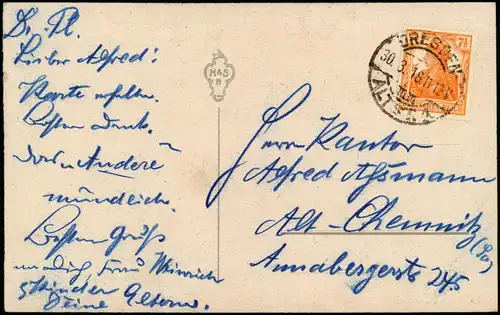 Dr. Pl.
Lieber Alfred!
Karte erhalten.
Besten Dank.
das "Andere"
mündlich.
Besten Gruß
an dich, Frau
& Kinder
Deine Eltern.
H&S
B
DRESDEN
ALTST.
30.3.16.11-12V.
7½
Herrn Kantor
Alfred Aßmann
Alt-Chemnitz
(Sa)
Annabergerstr 245